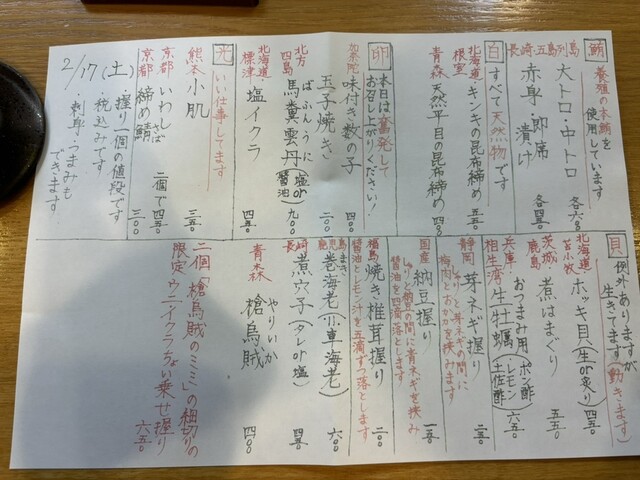 鮪 養殖の本鮪を
使用しています
長崎・五島列島
大トロ・中トロ 各六八〇
赤身・即席
漬け 各四五〇
白 すべて天然物です
北海道・根室 キンキの昆布締め 五五〇
青森 天然平目の昆布締め 四五〇
卵 本日は奮発して
お召し上がりください!
加奈陀 味付き数の子 四五〇
玉子焼き 二〇〇
北方四島 ばふんうに
馬糞雲丹(塩or醤油) 九〇〇
北海道・標津 塩イクラ 四五〇
光 いい仕事してます
熊本 小肌 三五〇
京都 いわし 二個で四五〇
京都 締め鯖 さば 三〇〇
2/17(土)・握り一個の値段です
・税込みです
・刺身・つまみも
できます
貝 例外ありますが
生きてます(動きます)
北海道・苫小牧 ホッキ貝(生or炙り) 四五〇
茨城・鹿島 煮はまぐり 五五〇
兵庫・相生湾 おつまみ用
生牡蠣(ポン酢 レモン 土佐酢) 六五〇
静岡 芽ネギ握り 二五〇
しゃりと芽ネギの間に
梅肉とおかかを挟みます
国産 納豆握り 一五〇
しゃりと納豆の間に青ネギを挟み
醤油を四滴落とします
福島 焼き椎茸握り 二〇〇
醤油とレモン汁を五滴ずつ落とします
鹿児島 まき
巻海老(小車海老) 六〇〇
長崎 煮穴子(タレor塩) 四五〇
青森 やりいか
槍烏賊 四〇〇
二個「槍烏賊のミミ」の細切りの
限定・ウニイクラちょい乗せ握り
六五〇